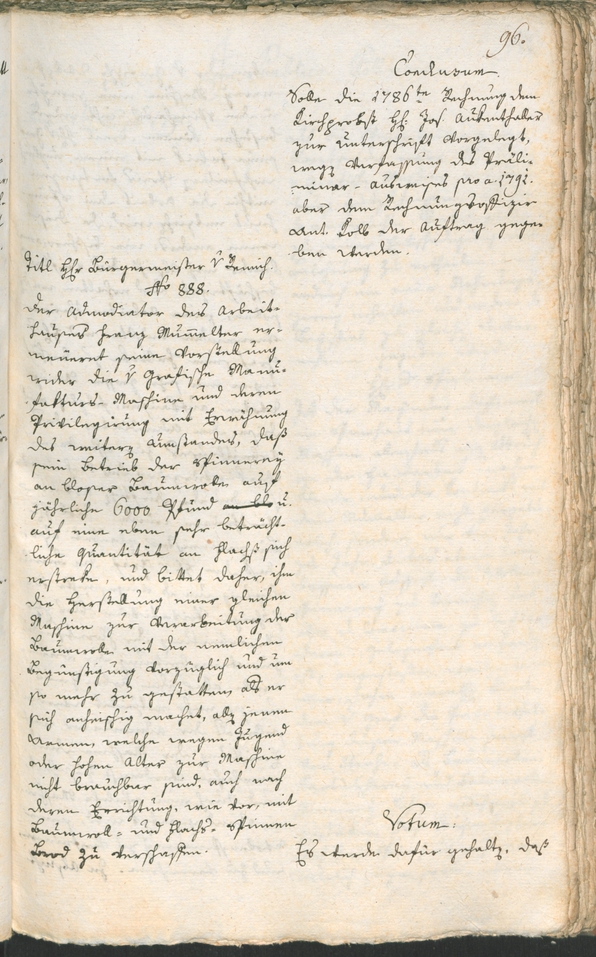 96.
Conclusum
Solle die 1786te Rechnung dem
Kirchprobst H. Jos. Aukenthaler
zur Unterschrift vorgelegt,
wegen Verfassung des Präli-
minar-Ausweises pro a. 1791.
aber dem Rechnungsoffizir
Ant. Kolb der Auftrag gege-
ben werden.
Titl Hr Bürgermeister v
No 888.
Der Admodiator des Arbeit-
hauses Franz Mumelter er-
neueret seine Vorstellung
wider die v Grafische Manu-
fakturs-Maschine und deren
Privilegirung mit Erwähnung
des weitern Umstandes, daß
sein Betrieb der Spinnerey
an bloser Baumwolle auf
jährliche 6000 Pfund u.
auf eine eben sehr beträcht-
liche Quantität an Flachs sich
erstreke, und bittet daher, ihm
die Herstellung einer gleichen
Maschine zur Verarbeitung der
Baumwolle mit der nemlichen
Begünstigung vorzüglich und um
so mehr zu gestatten, als er
sich anheischig machet, allen jenen
Armen, welche wegen Jugend
oder hohen Alter zur Maschine
nicht brauchbar sind, auch nach
deren Errichtung, wie vor, mit
Baumwoll- und Flachs-Spinnen
Brod zu verschaffen.
Votum.
Es werde dafür gehalten, daß